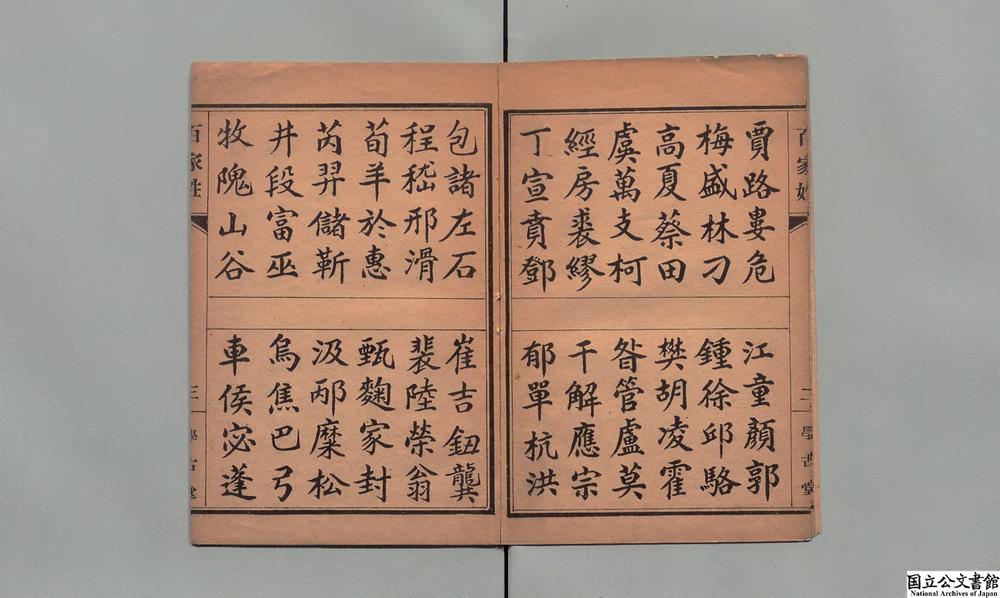 百家姓
三
學古堂
賈路婁危 江童顏郭
梅盛林刁 鍾徐邱駱
高夏蔡田 樊胡凌霍
虞萬支柯 昝管盧莫
經房裘繆 干解應宗
丁宣賁鄧 郁單杭洪
包諸左石 崔吉鈕龔
程嵇邢滑 裴陸榮翁
荀羊於惠 甄麴家封
芮羿儲靳 汲邴糜松
井段富巫 烏焦巴弓
牧隗山谷 車侯宓蓬
百家姓
三
學古堂
国立公文書館
National Archives of Japan